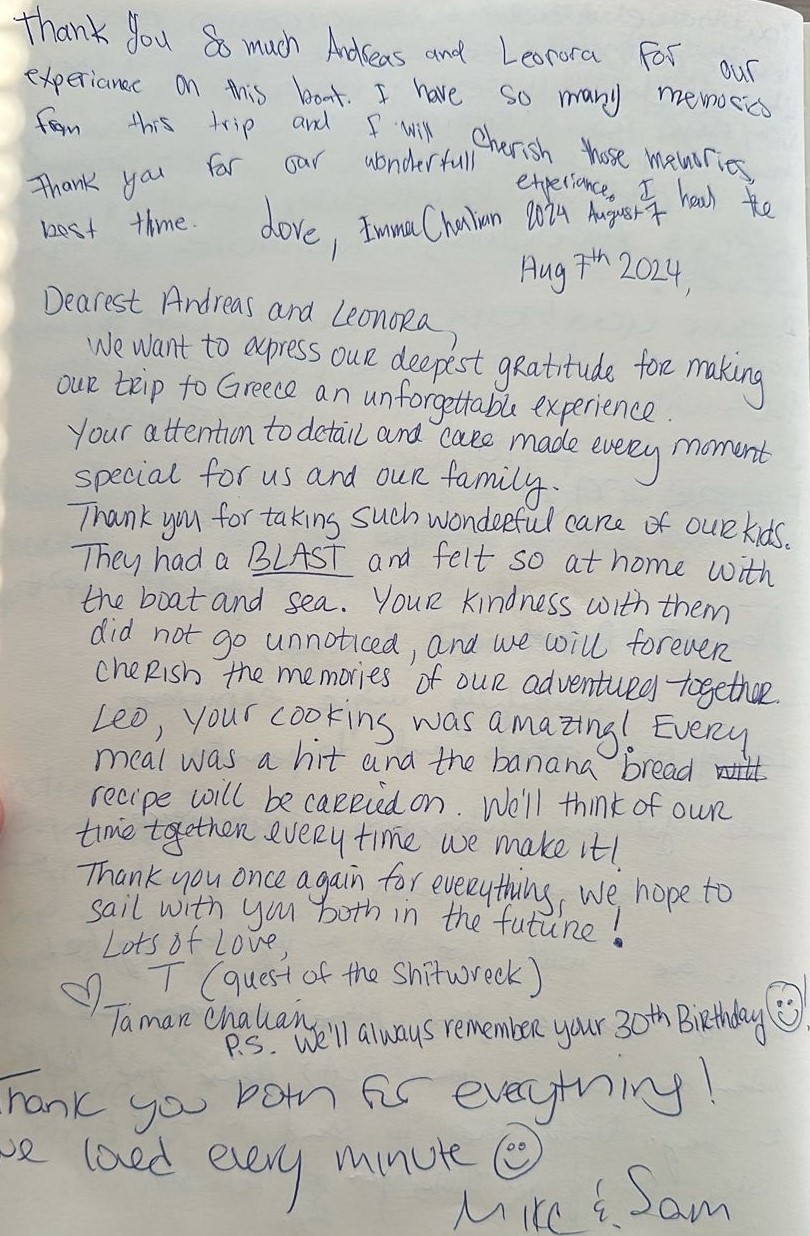 Thank you So much Andreas and Leonora For our
experiance on this boat. I have so many memories
from this trip and I will cherish those memories,
Thank you for our wonderfull experiance. I had the
best time. Love, Imma Chalian 2024 August 7
Aug 7th 2024,
Dearest Andreas and Leonora,
We want to express our deepest gratitude for making
our trip to Greece an unforgettable experience.
Your attention to detail and care made every moment
special for us and our family.
Thank you for taking such wonderful care of our kids.
They had a BLAST and felt so at home with
the boat and sea. Your kindness with them
did not go unnoticed, and we will forever
cherish the memories of our adventures together.
Leo, your cooking was amazing! Every
meal was a hit and the banana bread will
recipe will be carried on. We'll think of our
time together every time we make it!
Thank you once again for everything, we hope to
sail with you both in the future!
Lots of Love,
T (quest of the Shitwreck)
Tamar Chalian
P.S. We'll always remember your 30th Birthday !
Thank you both for everything!
we loved every minute
Mike & Sam